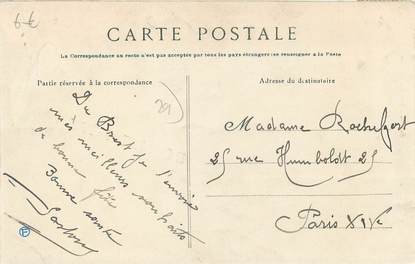 6 €
CARTE POSTALE
La Correspondance au recto n'est pas acceptée par tous les pays étrangers (se renseigner à la Poste)
Partie réservée à la correspondance
Adresse du destinataire
(29)
De Brest je t'envoie
mes meilleurs souhaits
de bonne fête
Bonne santé
Madame Rochefort
25 rue Humboldt 25
Paris XIVe
F